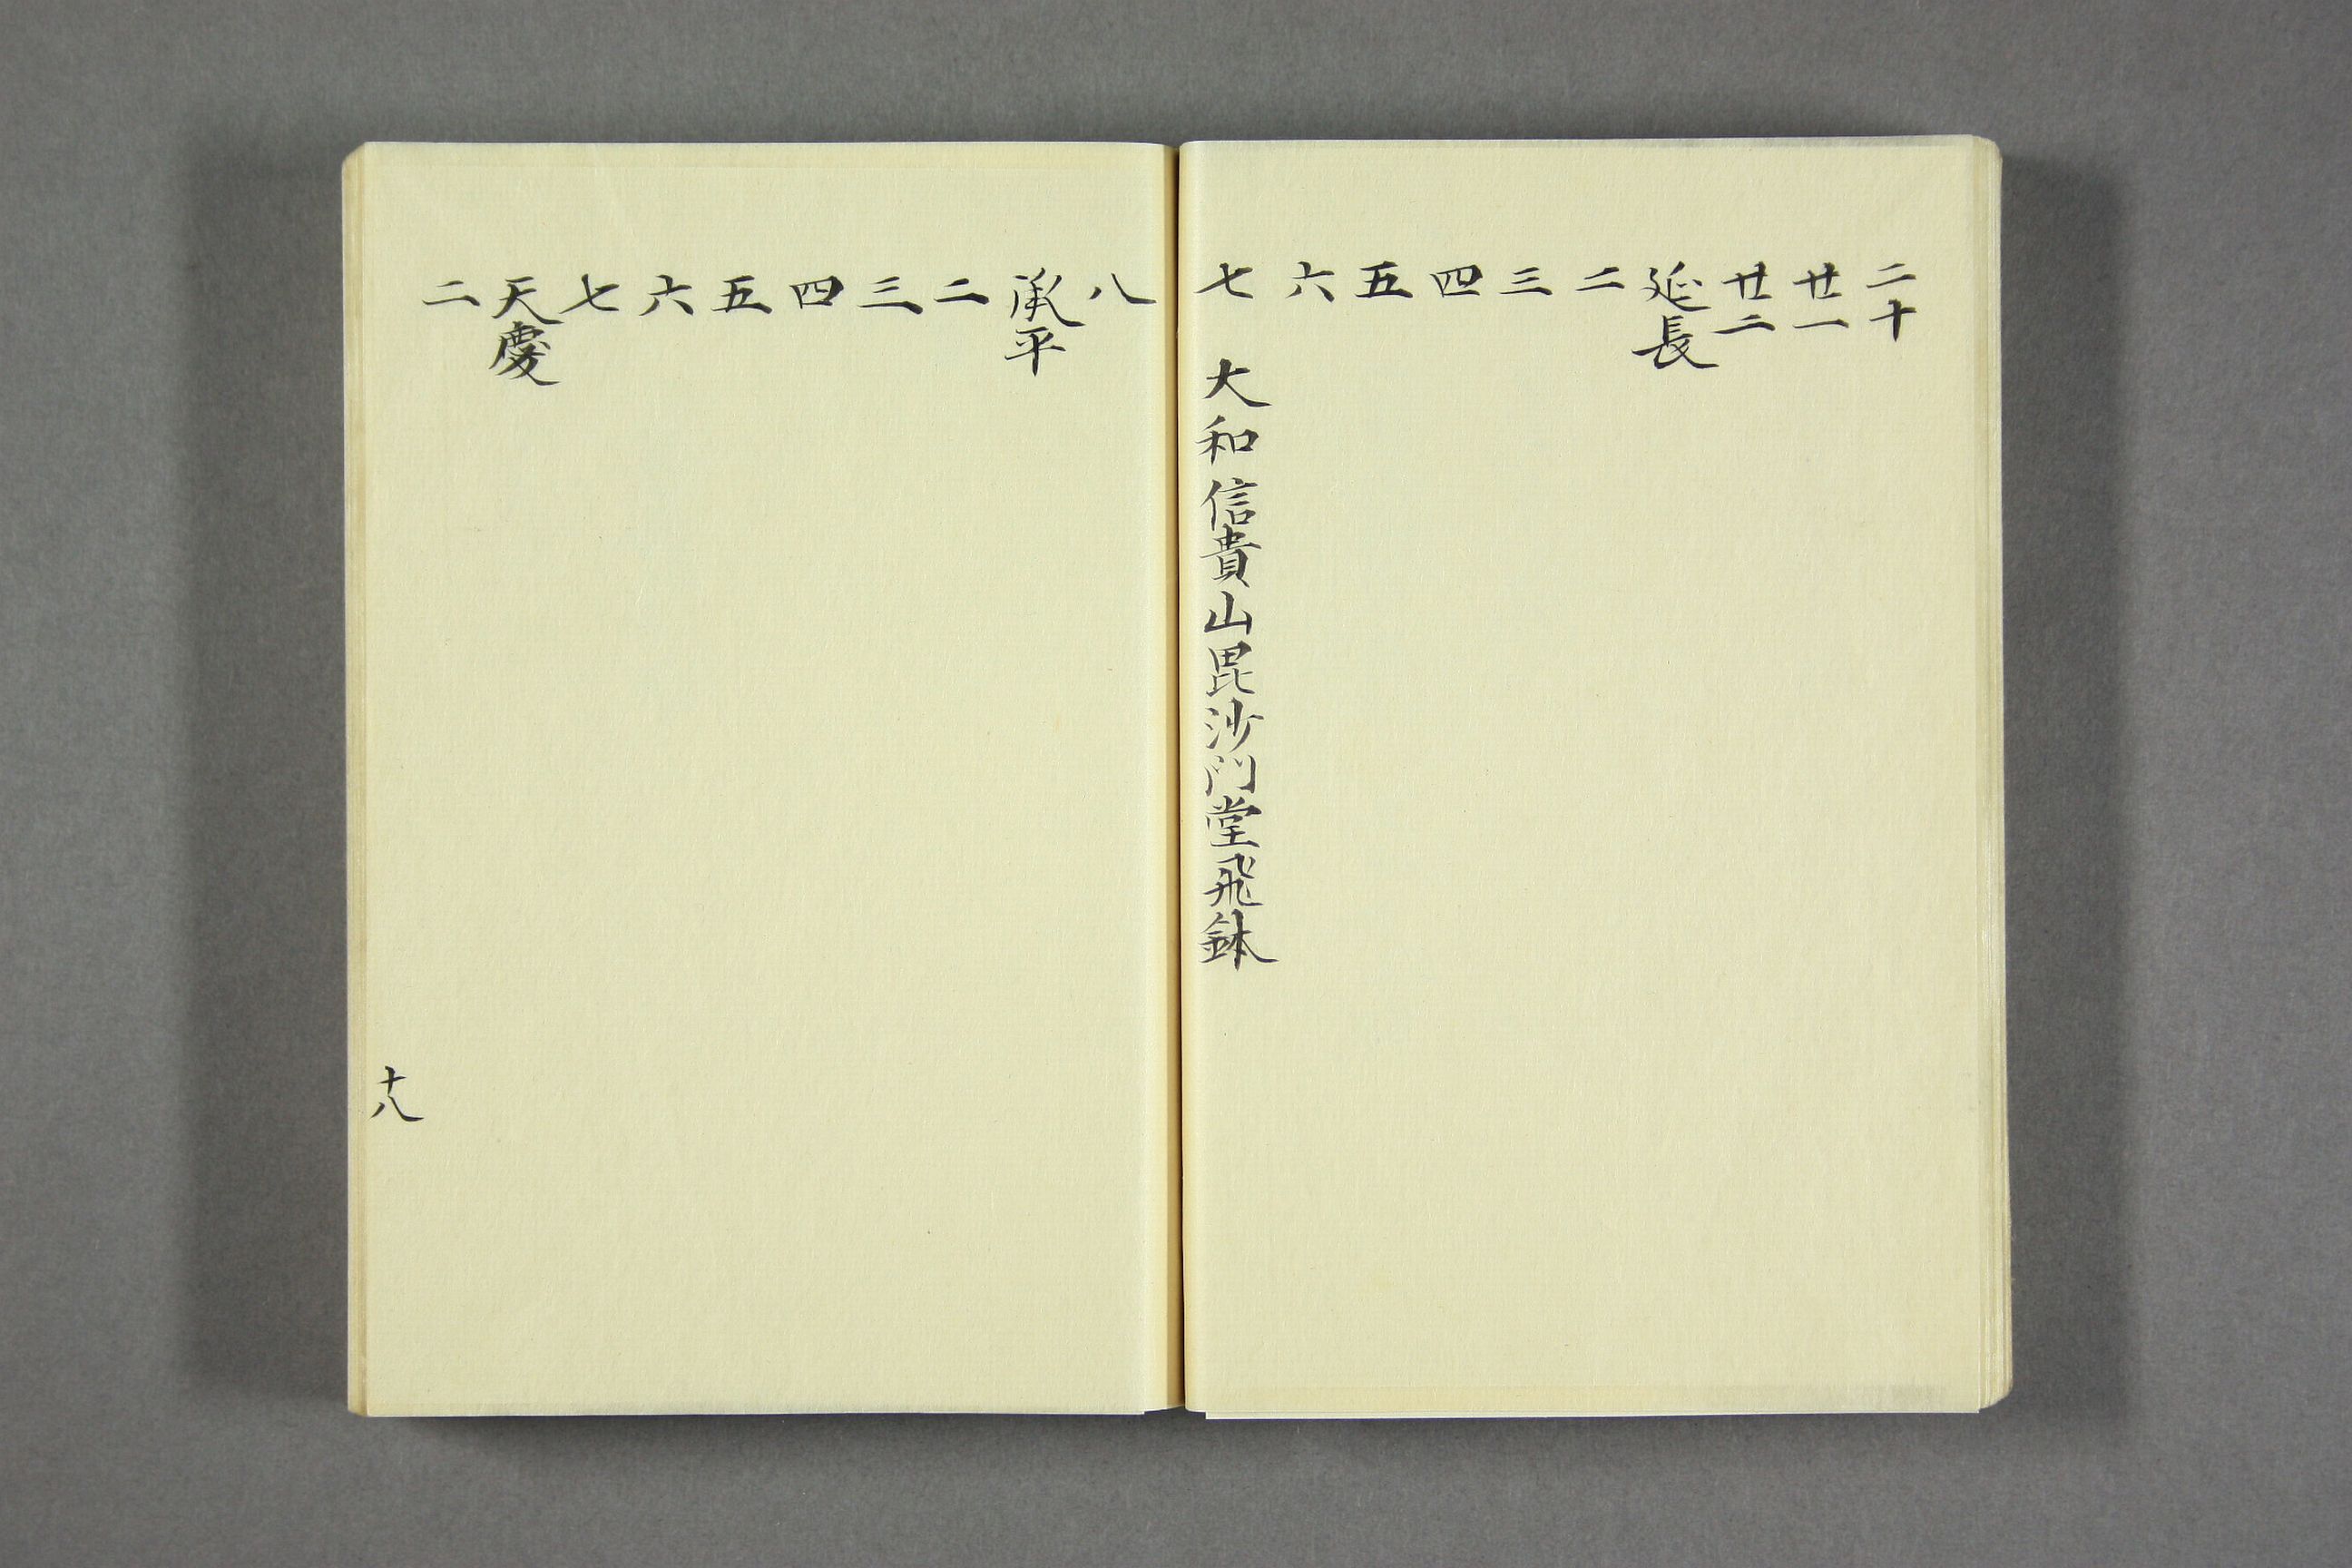 二十
廿一
廿二
延長
二
三
四
五
六
七 大和信貴山毘沙門堂飛鉢
八
承平
二
三
四
五
六
七
天慶
二
十八